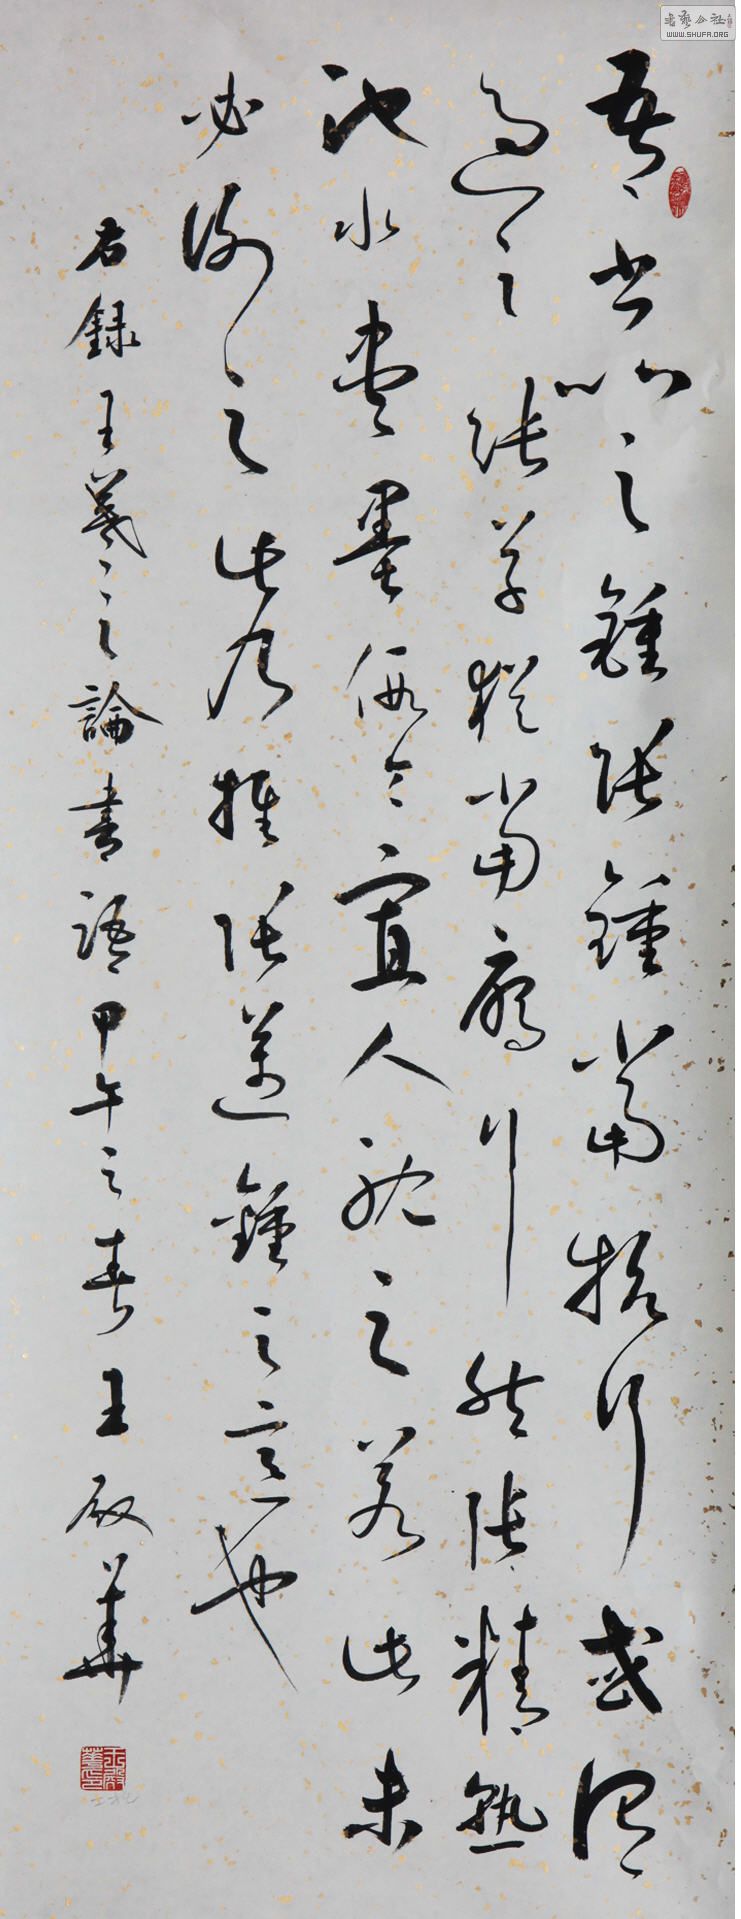 書藝公社
WWW.SHUFA.ORG
吾書比之鍾張鍾當抗行或謂
過之張草猶當雁行然張精熟
池水盡墨假令寡人耽之若此未
必謝之此乃推張邁鍾之意也
右錄王羲之論書語甲午之春王殿華